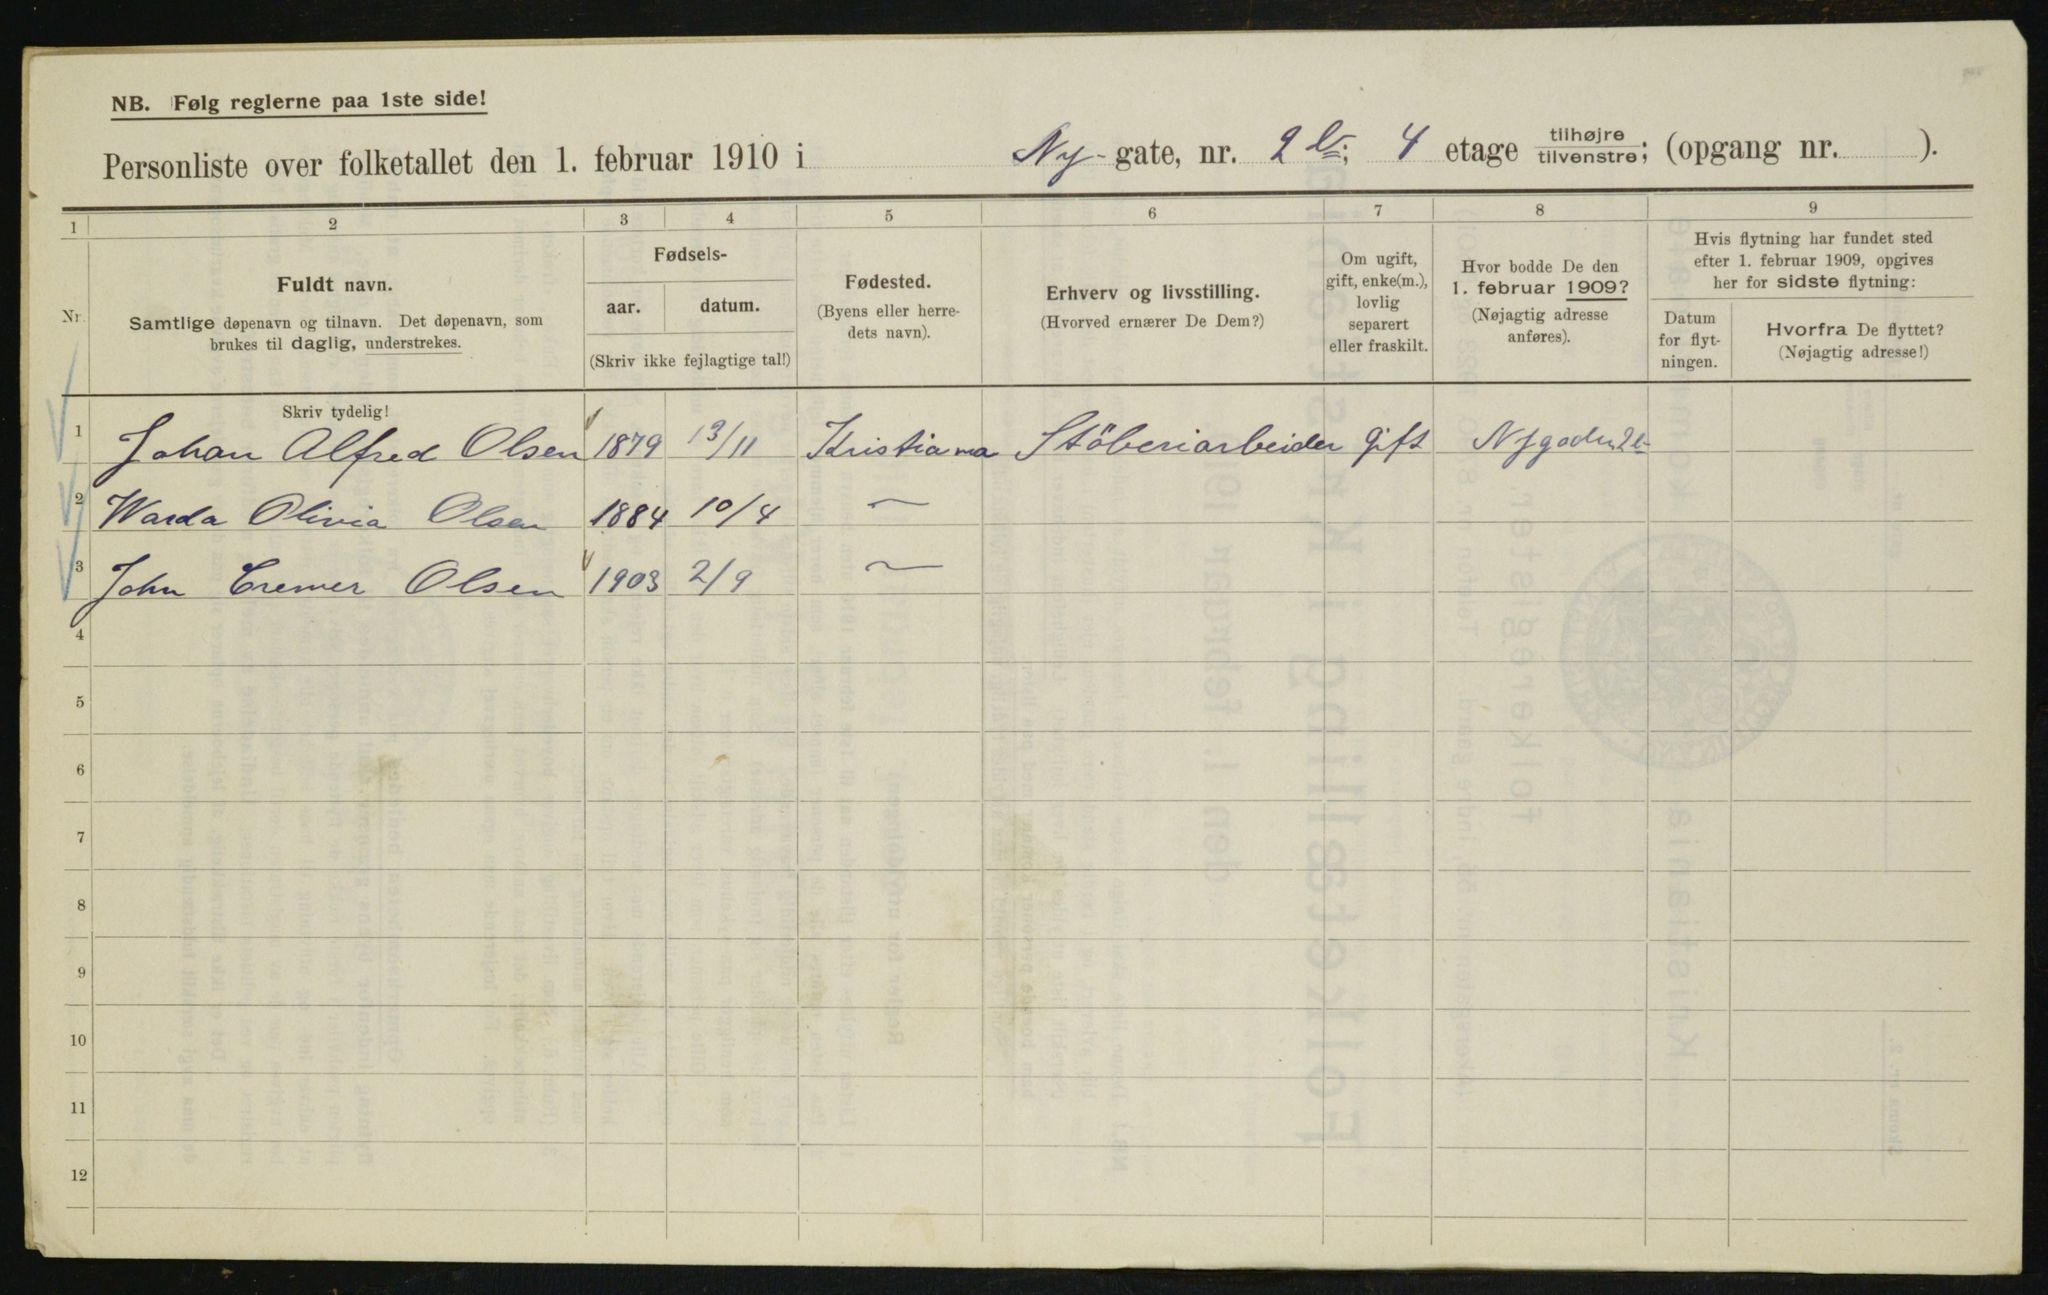 NB. Følg reglerne paa 1ste side!
Personliste over folketallet den 1. februar 1910 i Ny-gate, nr. 2 b; 4 etage tilhøjre / tilvenstre; (opgang nr. ).
1 2 3 4 5 6 7 8 9
Nr.
Fuldt navn.
Samtlige døpenavn og tilnavn. Det døpenavn, som
brukes til daglig, understrekes.
Fødsels-
aar. datum.
(Skriv ikke fejlagtige tal!)
Fødested.
(Byens eller herre-
dets navn).
Erhverv og livsstilling.
(Hvorved ernærer De Dem?)
Om ugift,
gift, enke(m.),
lovlig
separert
eller fraskilt.
Hvor bodde De den
1. februar 1909?
(Nøjagtig adresse
anføres).
Hvis flytning har fundet sted
efter 1. februar 1909, opgives
her for sidste flytning:
Datum
for flyt-
ningen.
Hvorfra De flyttet?
(Nøjagtig adresse!)
Skriv tydelig!
1 Johan Alfred Olsen 1879 13/11 Kristiania Stöberiarbeider Gift Nygaden 2b
2 Warda Olivia Olsen 1884 10/4 —
3 John Cremer Olsen 1903 2/9 —
4
5
6
7
8
9
10
11
12